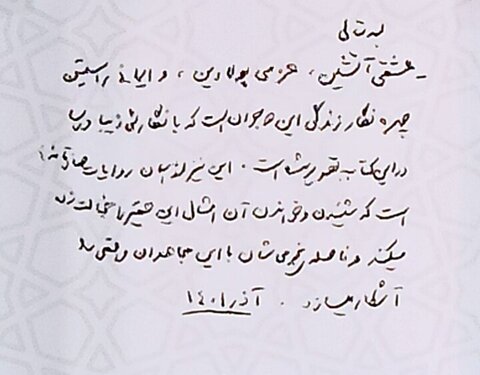 بسمه تعالی
عشقی آتشین، عزمی پولادین، و ایمانی راستین
چهره نگار زندگی این جوان است که با نگارشی زیبا و رسا
در این کتاب به تصویر شده است. این نیز از آن روایات صادقانه
است که شنیدن و خواندن آن امثال این حقیر را خجالت زده
میکند و فاصله نجومی شان با این مجاهدان واقعی را
آشکار میسازد. آذر ۱۴۰۱